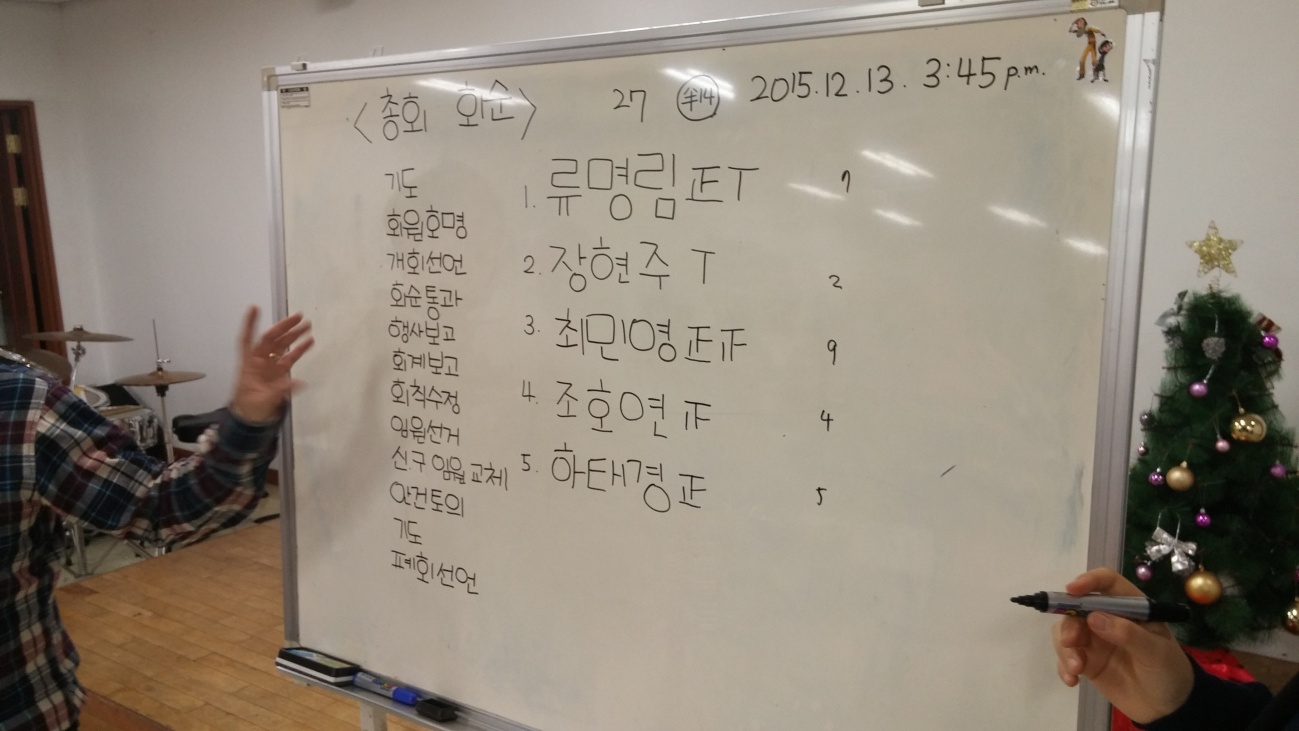 <총회 화순> 27 半14 2015.12.13. 3:45 p.m.
기도
회원호명
개회선언
회순통과
행사보고
회계보고
회칙수정
임원선거
신구 임원 교체
안건토의
기도
폐회선언
1. 류명림 正T 7
2. 장현주 T 2
3. 최민영 正正 9
4. 조호연 正 4
5. 하태경 正 5